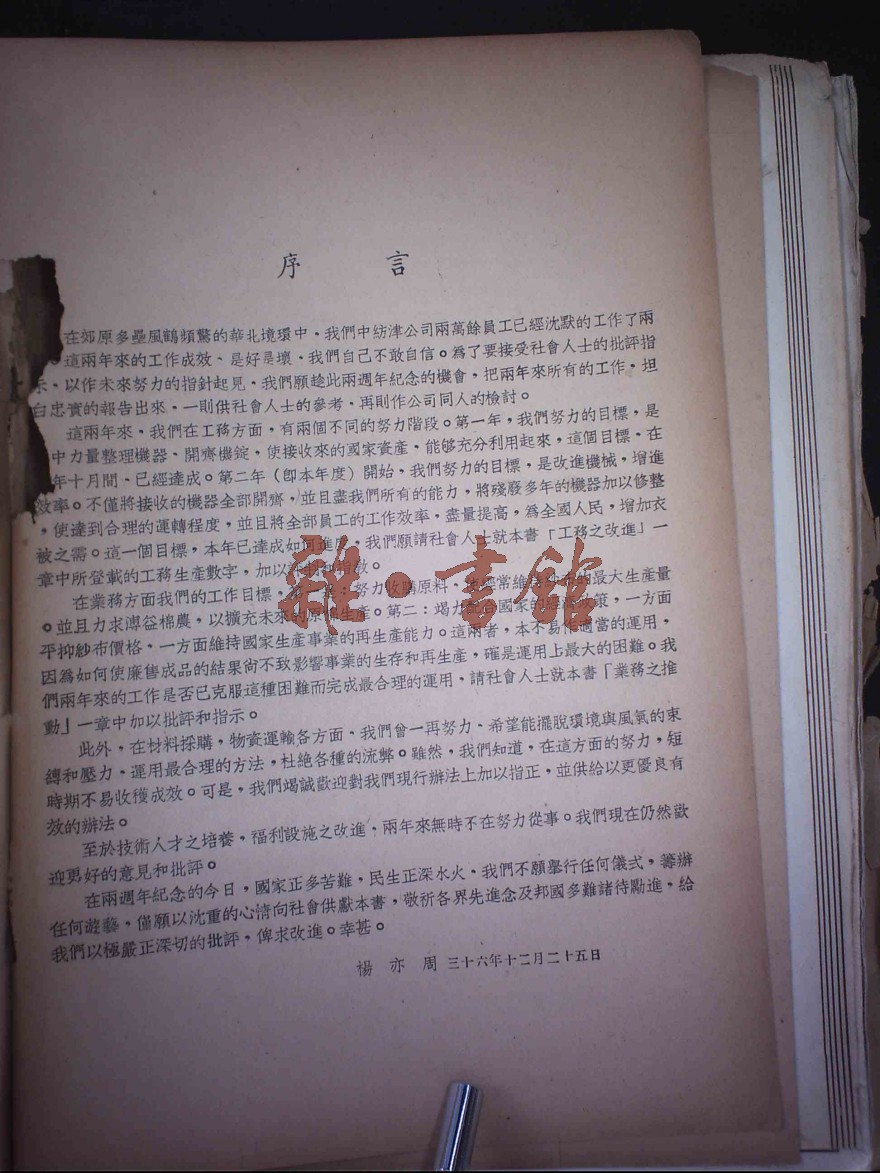 序言
在郊原多壘風鶴頻驚的華北境環中，我們中紡津公司兩萬餘員工已經沈默的工作了兩
。這兩年來的工作成效、是好是壞，我們自己不敢自信。爲了要接受社會人士的批評指
示、以作未來努力的指針起見，我們願趁此兩週年紀念的機會，把兩年來所有的工作，坦
白忠實的報告出來，一則供社會人士的參考、再則作公司同人的檢討。
這兩年來、我們在工務方面，有兩個不同的努力階段。第一年，我們努力的目標，是
中力量整理機器、開齊機錠，使接收來的國家資產，能够充分利用起來，這個目標、在
年十月間、已經達成。第二年（卽本年度）開始，我們努力的目標，是改進機械，增進
效率。不僅將接收的機器全部開齊，並且盡我們所有的能力，將殘廢多年的機器加以修整
，使達到合理的運轉程度，並且將全部員工的工作效率，盡量提高，爲全國人民，增加衣
被之需。這一個目標，本年已達成如何進度，我們願請社會人士就本書「工務之改進」一
章中所登載的工務生產數字，加以評判和指教。
在業務方面我們的工作目標，第一：努力收購原料，使經常維持紗布的最大生產量
。並且力求溥益棉農，以擴充未來的原棉生產。第二：竭力配合國家的經濟政策，一方面
平抑紗布價格，一方面維持國家生產事業的再生產能力。這兩者，本不易作適當的運用，
因爲如何使廉售成品的結果尙不致影響事業的生存和再生產，確是運用上最大的困難。我
們兩年來的工作是否已克服這種困難而完成最合理的運用，請社會人士就本書「業務之推
動」一章中加以批評和指示。
此外，在材料採購，物資運輸各方面、我們曾一再努力、希望能擺脫環境與風氣的束
縛和壓力，運用最合理的方法，杜絶各種的流弊。雖然，我們知道，在這方面的努力，短
時期不易收穫成效。可是，我們竭誠歡迎對我們現行辦法上加以指正，並供給以更優良有
效的辦法。
至於技術人才之培養，福利設施之改進，兩年來無時不在努力從事。我們現在仍然歡
迎更好的意見和批評。
在兩週年紀念的今日，國家正多苦難，民生正深水火、我們不願舉行任何儀式，籌辦
任何遊藝，僅願以沈重的心情向社會供獻本書，敬祈各界先進念及邦國多難諸待勵進，給
我們以極嚴正深切的批評，俾求改進。幸甚。
楊亦周 三十六年十二月二十五日
雜·書館